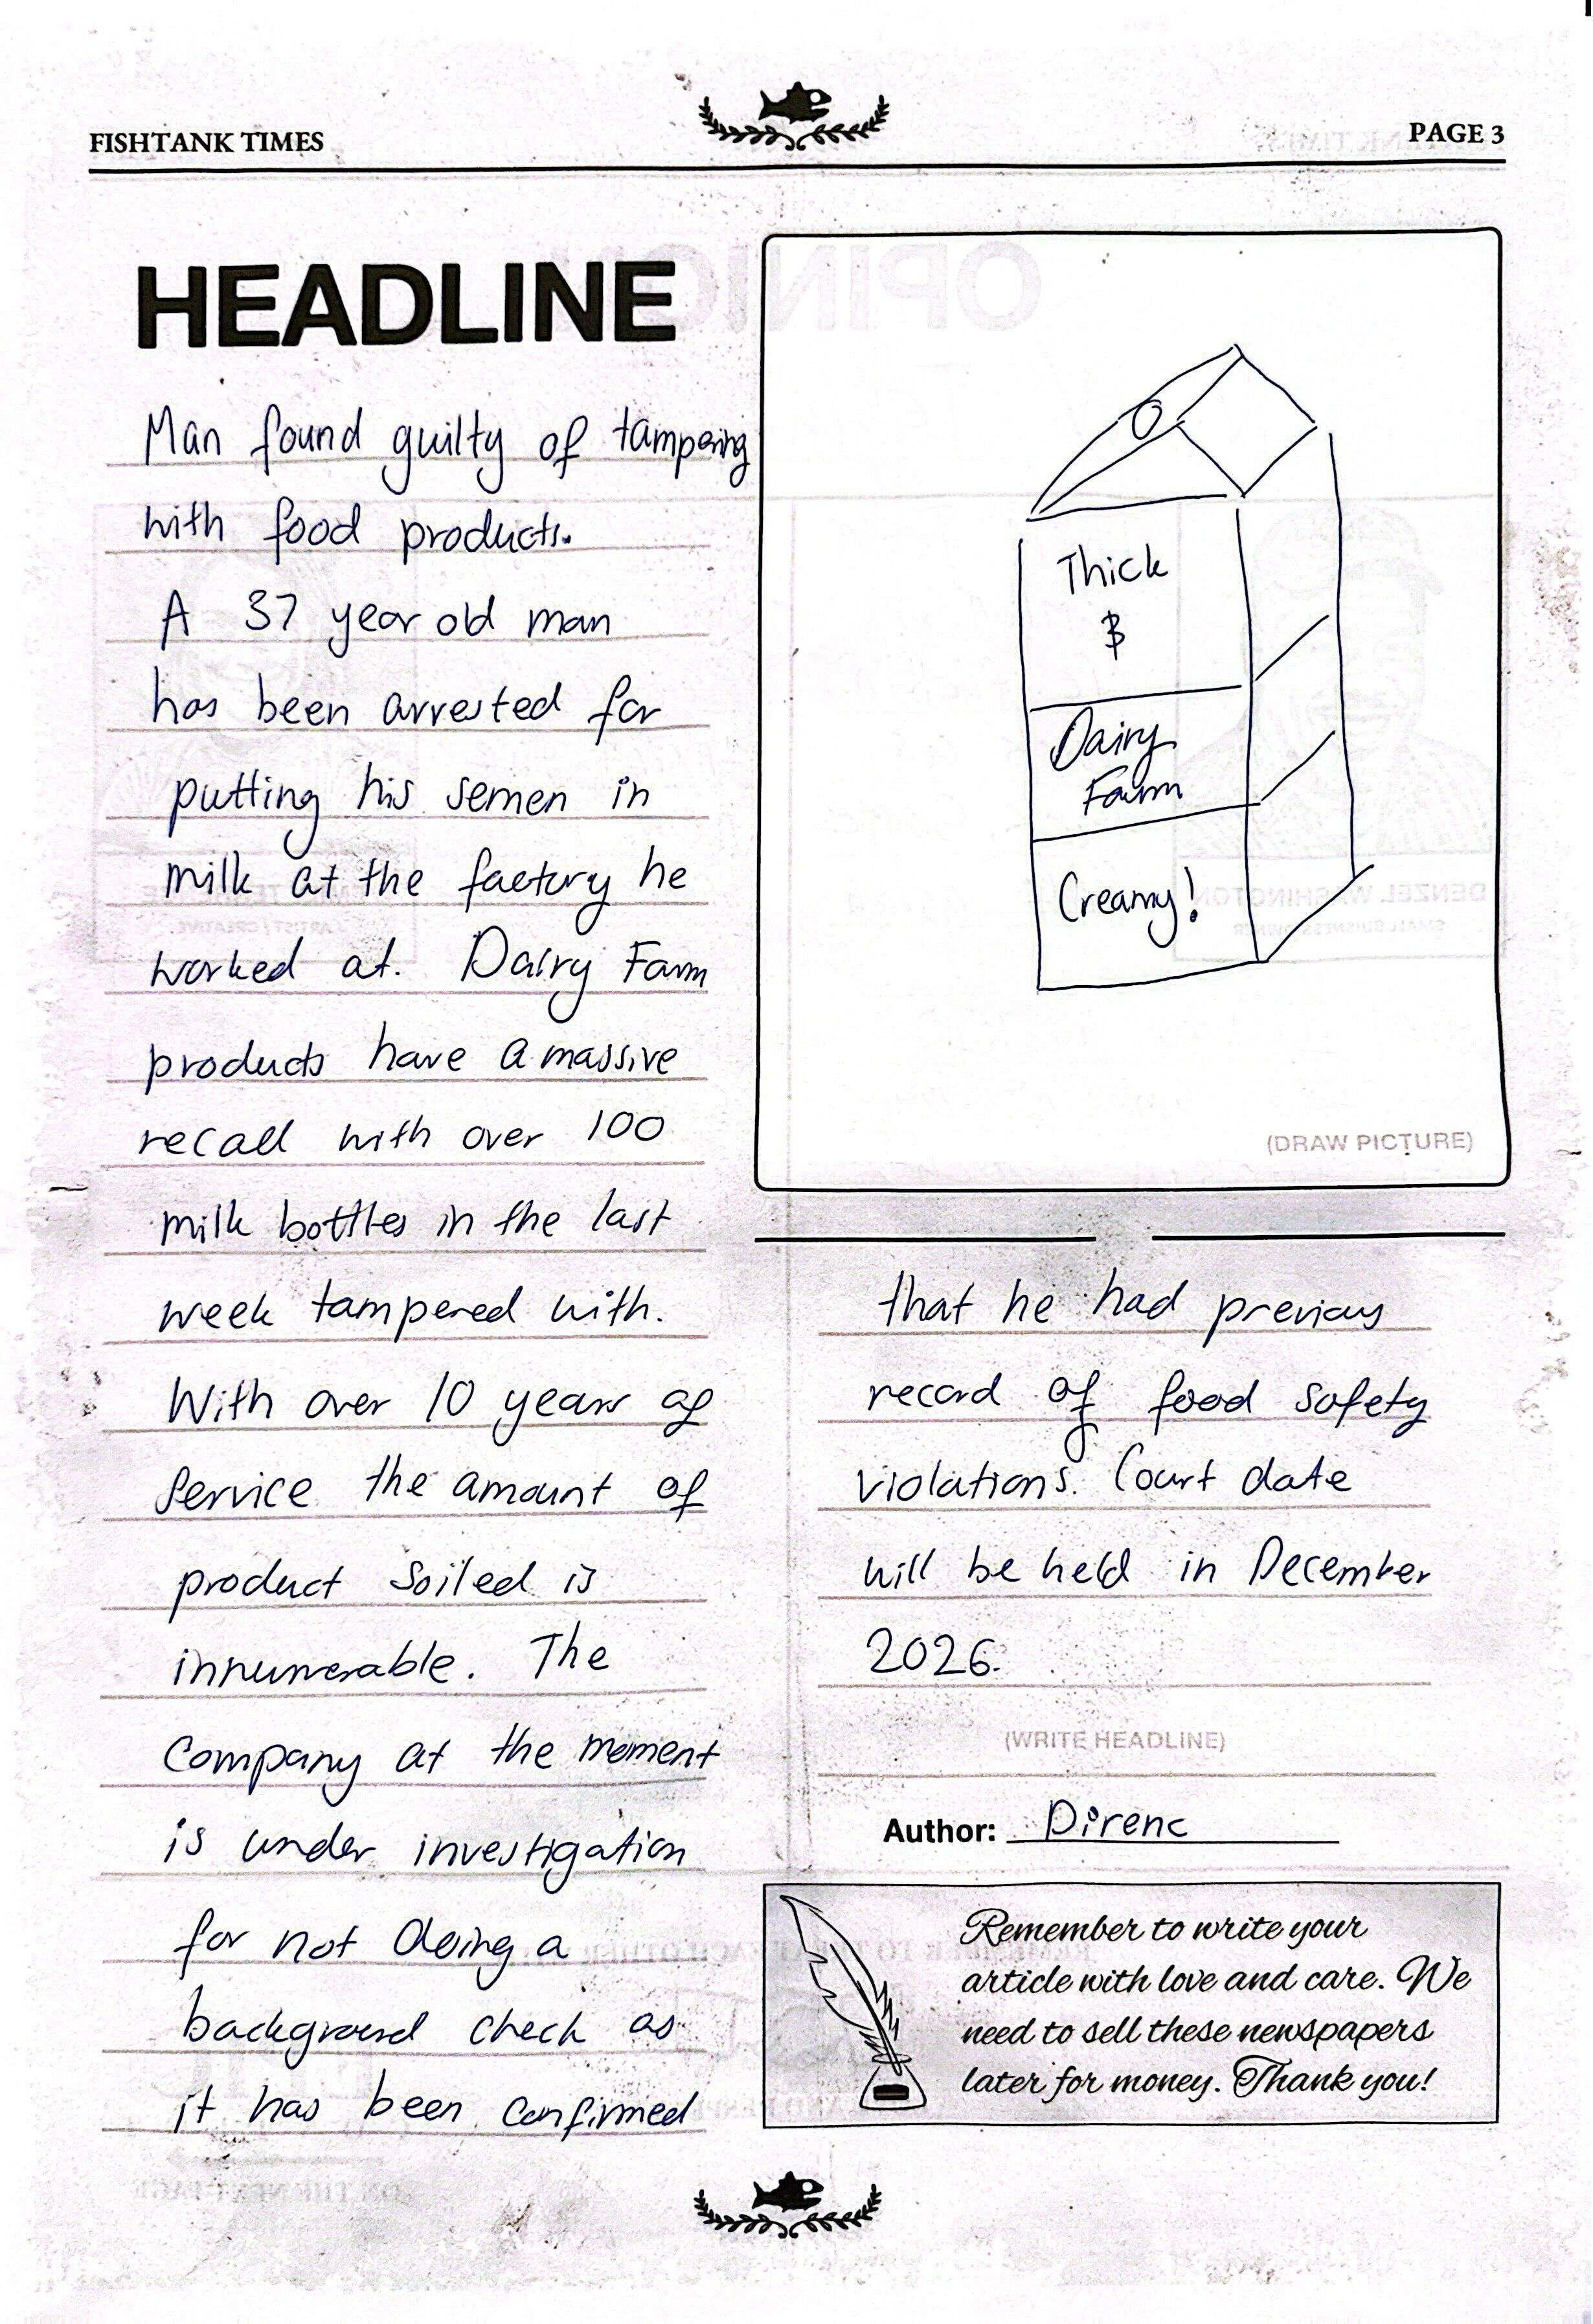 FISHTANK TIMES
PAGE 3
HEADLINE
Man found guilty of tampering
with food products.
A 37 year old man
has been arrested for
putting his semen in
milk at the factory he
worked at. Dairy Farm
products have a massive
recall with over 100
milk bottles in the last
week tampered with.
With over 10 years of
service the amount of
product soiled is
innumerable. The
company at the moment
is under investigation
for not doing a
background check as
it has been confirmed
Thick
Dairy
Farm
Creamy!
(DRAW PICTURE)
that he had previous
record of food safety
violations. Court date
will be held in December
2026.
(WRITE HEADLINE)
Author: Direnc
Remember to write your
article with love and care. We
need to sell these newspapers
later for money. Thank you!